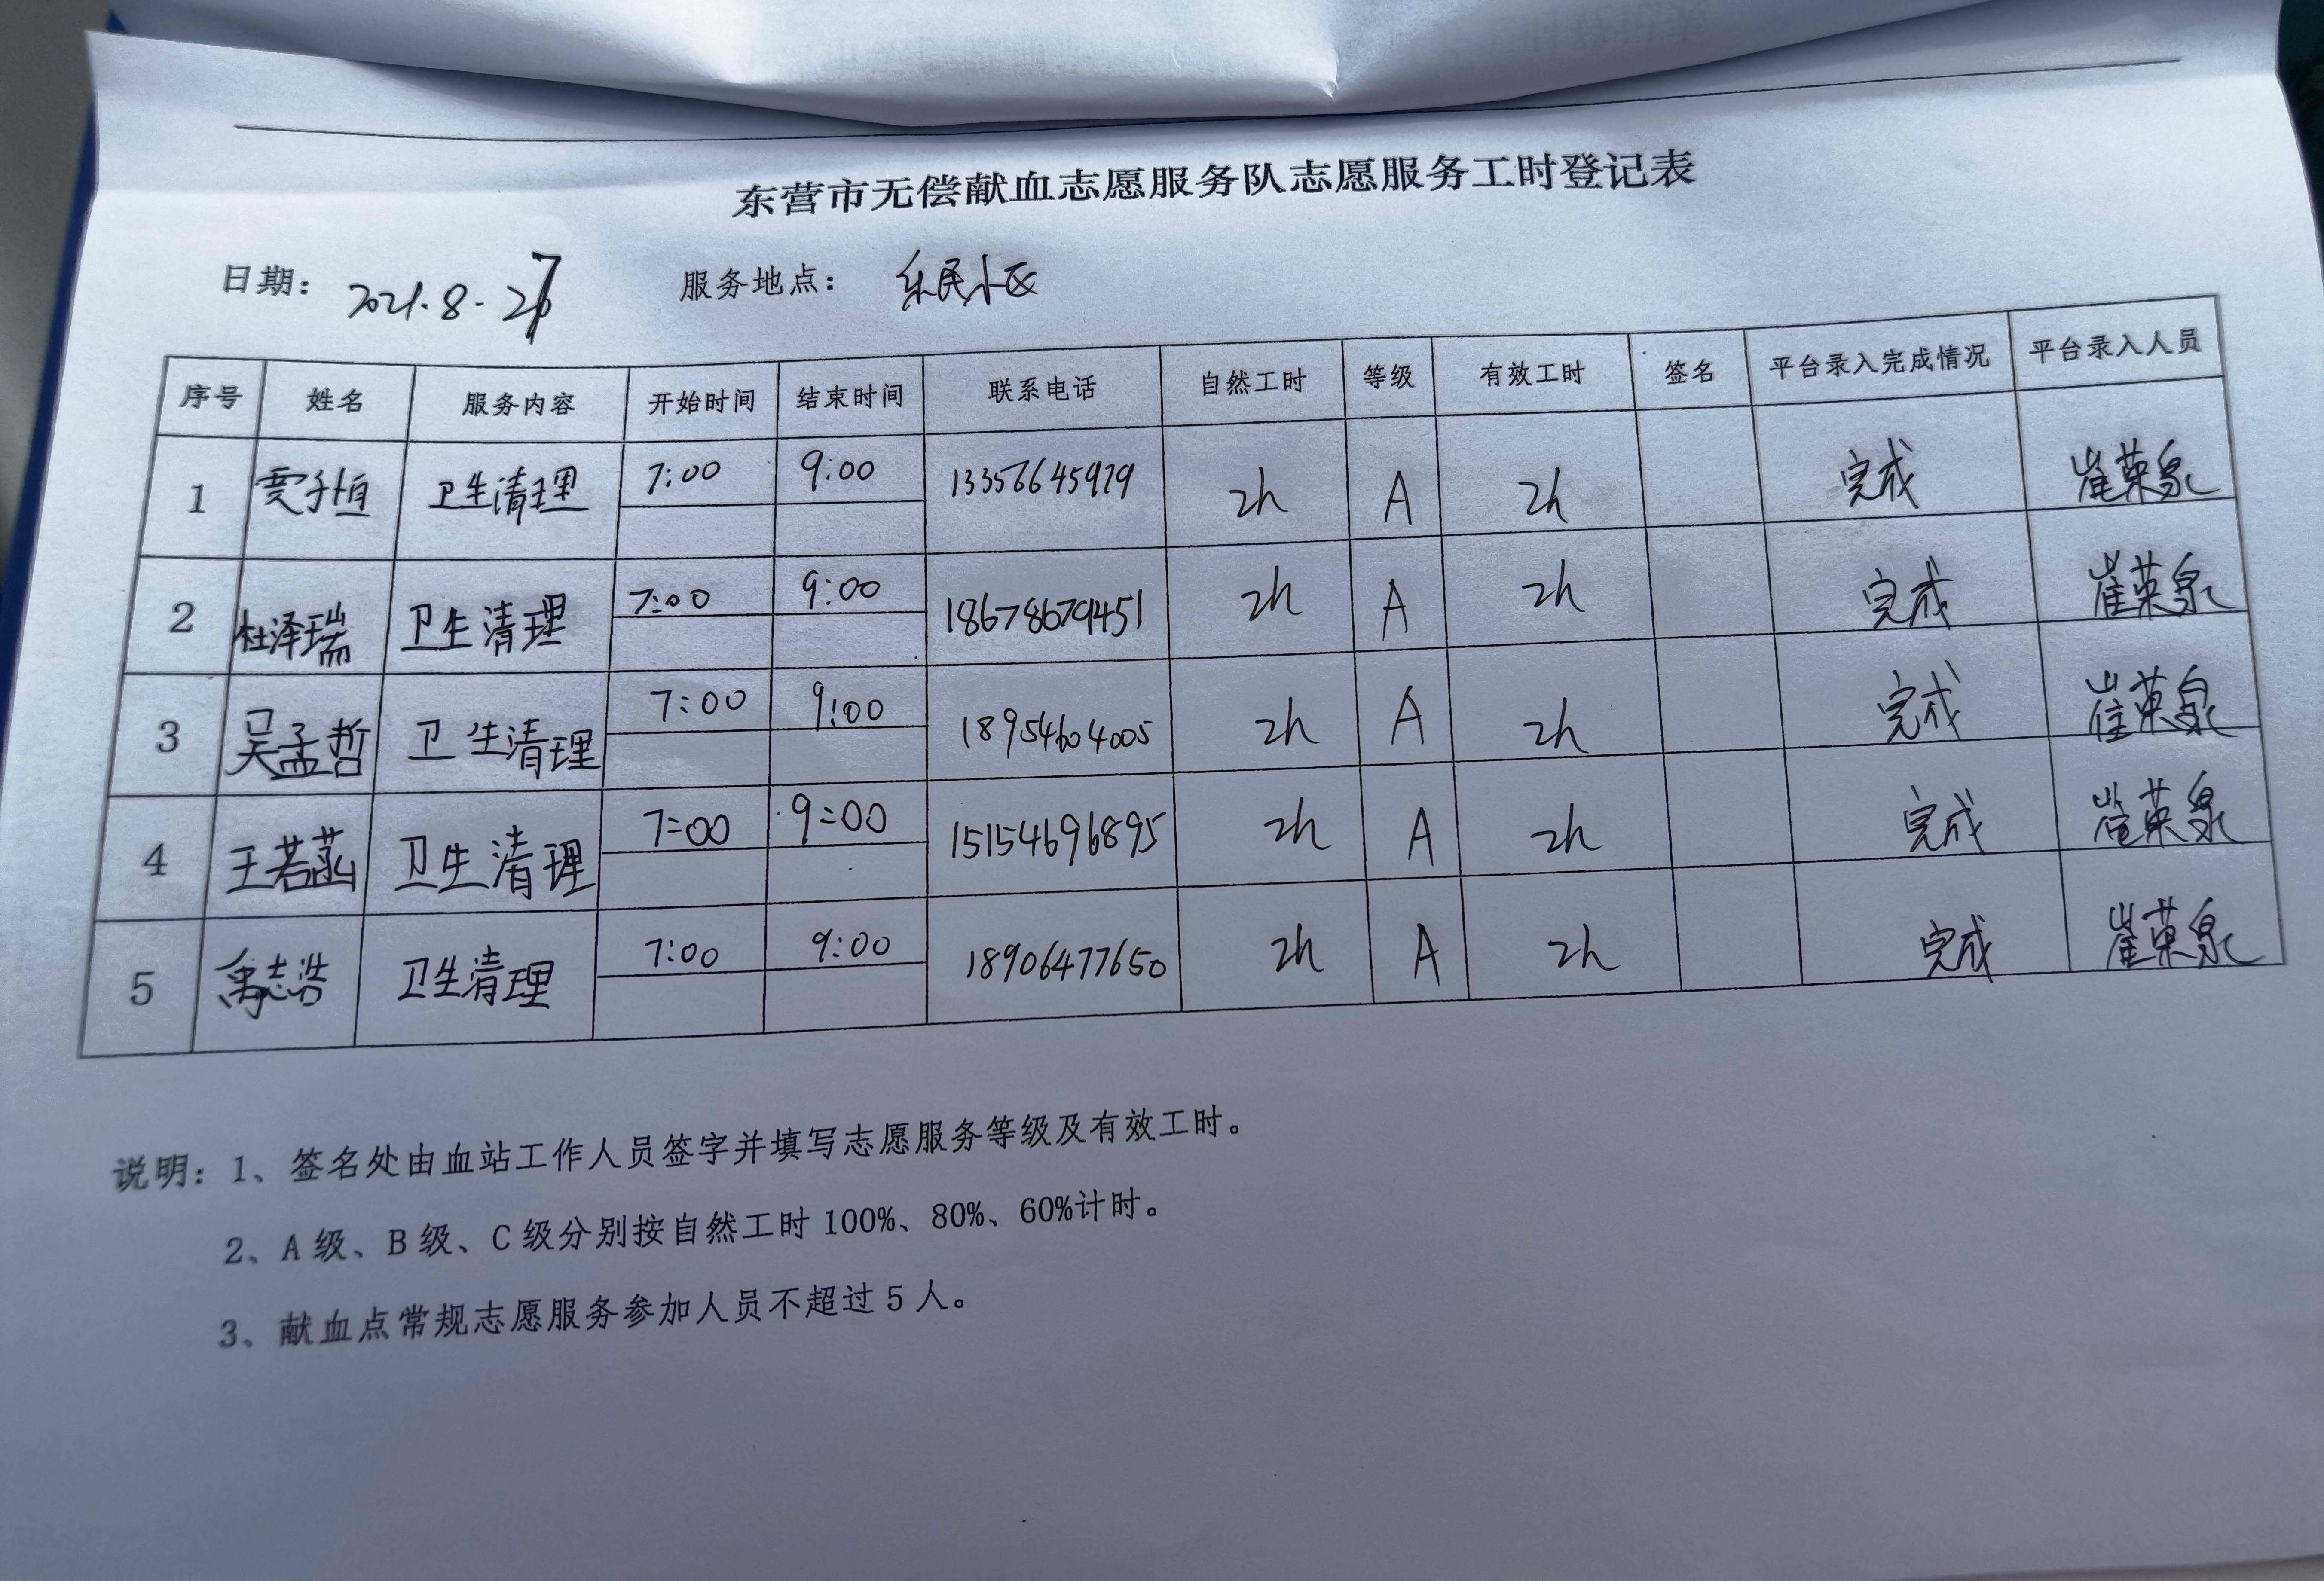 东营市无偿献血志愿服务队志愿服务工时登记表
日期： 2021.8.27 服务地点： 乐民小区
序号 姓名 服务内容 开始时间 结束时间 联系电话 自然工时 等级 有效工时 签名 平台录入完成情况 平台录入人员
1 贾子恒 卫生清理 7:00 9:00 13356645979 2h A 2h 完成 崔荣泉
2 杜泽瑞 卫生清理 7:00 9:00 18678679451 2h A 2h 完成 崔荣泉
3 吴孟哲 卫生清理 7:00 9:00 18954604005 2h A 2h 完成 崔荣泉
4 王若菡 卫生清理 7:00 9:00 15154696895 2h A 2h 完成 崔荣泉
5 禹志浩 卫生清理 7:00 9:00 18906477650 2h A 2h 完成 崔荣泉
说明：1、签名处由血站工作人员签字并填写志愿服务等级及有效工时。
2、A级、B级、C级分别按自然工时100%、80%、60%计时。
3、献血点常规志愿服务参加人员不超过5人。